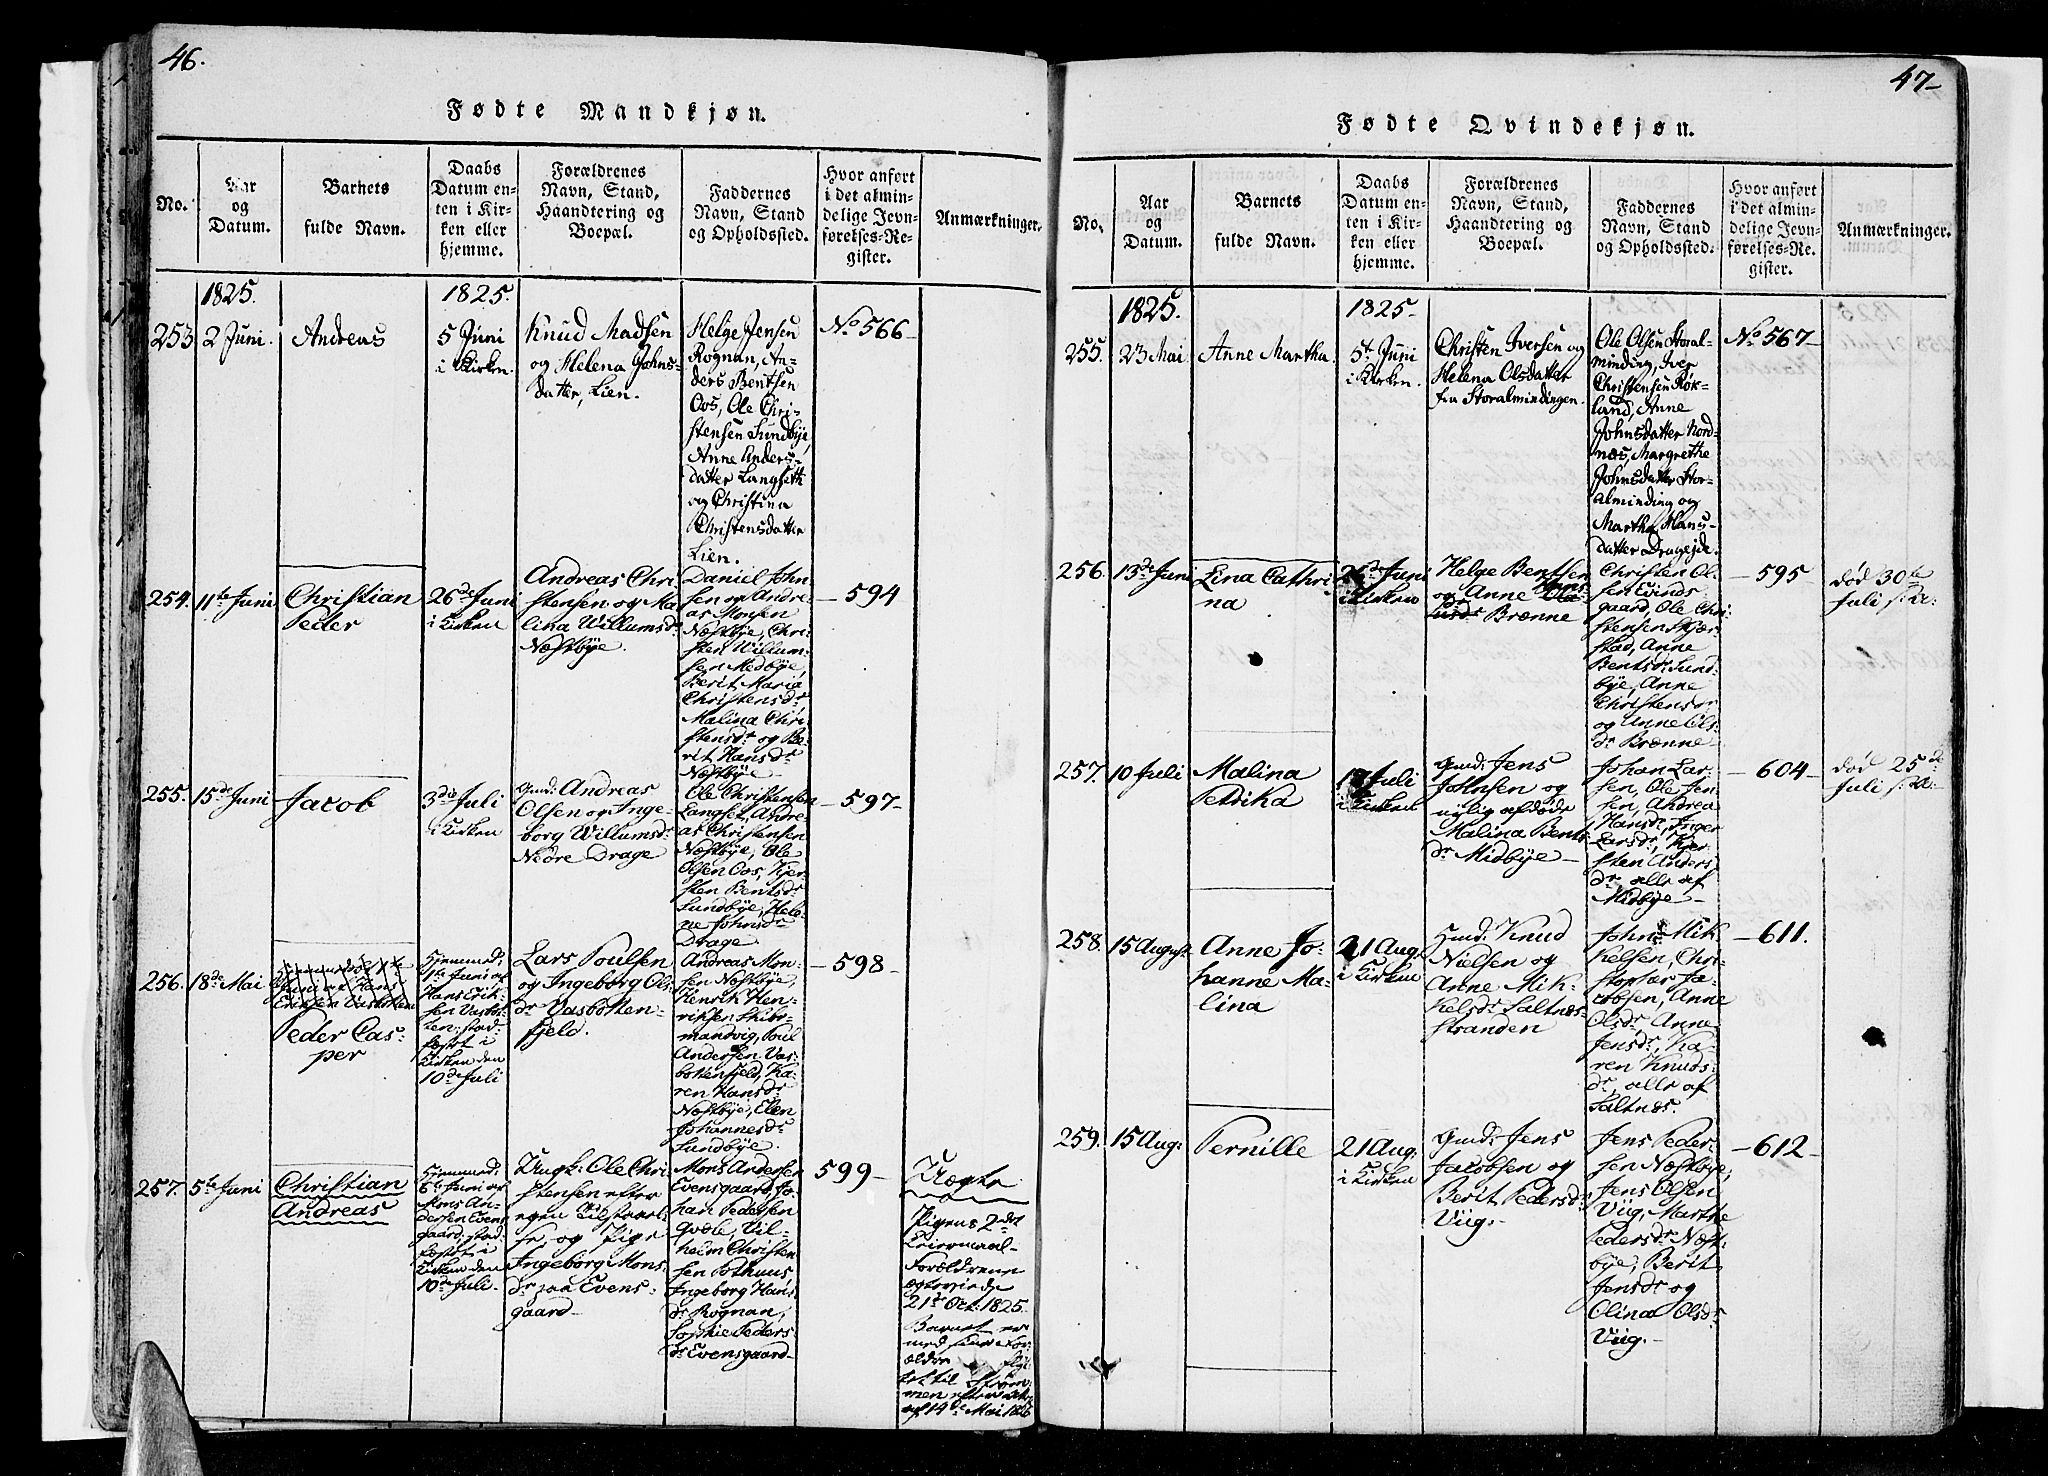 46.
Fødte Mandkjøn.
No.
Aar
og
Datum.
Barnets
fulde Navn.
Daabs
Datum en-
ten i Kir-
ken eller
hjemme.
Forældrenes
Navn, Stand,
Haandtering og
Boepæl.
Faddernes
Navn, Stand
og Opholdssted.
Hvor anført
i det almin-
delige Jevn-
førelses-Re-
gister.
Anmærkninger.
1825.
1825.
253
2 Juni.
Andreas
5 Juni
i Kirken.
Knud Madsen
og Helena Johns-
datter, Lien.
Helge Jensen
Rognan, An-
ders Bentsen
Oos, Ole Chri-
stensen Sundbye,
Anne Anders-
datter Langseth
og Christina
Christensdatter
Lien.
No 566-
254.
11te Juni
Christian
Peder
26de Juni
i Kirken
Andreas Chri-
stensen og Ma-
lina Willumsdr
Næstbye.
Daniel John-
sen og Andre-
as Monsen
Næstbye, Chri-
sten Willum-
sen Medbye
Berit Maria
Christensdr
Malina Chri-
stensdr og Be-
rit Hansdr
Næstbye
-594
255.
15de Juni
Jacob
3die Juli
i Kirken
Gmd: Andreas
Olsen og Inge-
borg Willumsdr
Nedre Drage
Ole Christensen
Langset, Andre-
as Christensen
Næstbye, Ole
Olsen Oos, Kjer-
sten Bentsdr
Sundbye, Hele-
ne Johnsdr
Drage
-597-
256.
18de Mai
Peder Cas-
per
Hjemmed:
1te Juni af
Hans Erik-
sen Vasbot-
ten: stad-
fæstet i
Kirken den
10de Juli
Lars Poulsen
og Ingeborg Ols-
dr Vasbotten-
fjeld.
Andreas Mon-
sen Næstbye,
Henrik Hen-
riksen Skibs-
mandvig, Poul
Andersen Vas-
bottenfjeld, Ka-
ren Hansdr
Næstbye, Elen
Johannesdr
Sundbye.
-598-
257.
5te Juni
Christian
Andreas
Hjemmed:
6te Juni af
Mons An-
dersen Evens-
gaard, stad-
fæstet i
Kirken den
10de Juli.
Ungk: Ole Chri-
stensen efter
egen Tilstaael-
se, og Pige
Ingeborg Mons-
dr paa Evens-
gaard-
Mons Andersen
Evensgaard, Jo-
han Pedersen
Vil-
helm Christen-
sen Pothuus
Ingeborg Hans-
dr Rognan,
Sophie Peders-
dr Evensgaard-
599-
Uægte
Pigens 2det
Leiermaal-
Forældrene
ægteviede
21de Oct: 1825.
Barnet er
med sine For-
ældre flyt-
tet til
men efter
af 14de Mai 1826
47-
Fødte Qvindekjøn.
No.
Aar
og
Datum.
Barnets
fulde Navn.
Daabs
Datum en-
ten i Kir-
ken eller
hjemme.
Forældrenes
Navn, Stand,
Haandtering og
Boepæl.
Faddernes
Navn, Stand
og Opholdssted.
Hvor anført
i det almin-
delige Jevn-
førelses-Re-
gister.
Anmærkninger.
1825.
1825.
255.
23 Mai
Anne Martha.
5te Juni
i Kirken.
Christen Iversen og
Helena Olsdatter
fra Storalmindingen.
Ole Olsen Storal-
minding, Iver
Christensen Røk-
land, Anne
Johnsdatter Nord-
næs, Margrethe
Johnsdatter Stor-
alminding og
Martha Hans-
datter Drageide.
No 567-
256.
13de Juni
Lina Cathri-
na
26de Juni
i Kirken
Helge Bentsen
og Anne
Brænne
Christen Ol-
sen Evinds-
gaard, Ole Chri-
stensen Skjær-
stad, Anne
Bentsdr Sund-
bye, Anne
Christensdr
og Anne Ols-
dr Brænne-
-595-
død 30te
Juli s: A:
257.
10 Juli
Malina
Petrika
17 Juli
i Kirken
Gmd: Jens
Johnsen og
nylig afdøde
Malina Bents-
dr Midbye-
Johan Lar-
sen, Ole Jen-
sen, Andrea
Hansdr, Inger
Larsdr, Kjer-
sten Anders-
dr, alle af
Midbye-
-604-
død 25de
Juli s: A:
258.
15 August
Anne Jo-
hanne Ma-
lina
21 Aug.
i Kirken
Huusmd: Knud
Nielsen og
Anne Mik-
kelsdr Saltnæs-
stranden
John Mik-
kelsen, Chri-
stopher Ja-
cobsen, Anne
Olsdr, Anne
Jensdr, Ka-
ren Knuds-
dr, alle af
Saltnæs.
-611.
259.
15 Aug:
Pernille
21 Aug.
i Kirken
Gmd: Jens
Jacobsen og
Berit Pedersdr
Viig.-
Jens Peder-
sen Næstbye,
Jens Olsen
Viig, Marthe
Pedersdr Næst-
bye, Berit
Jensdr og
Olina Olsdr
Viig.-
-612-